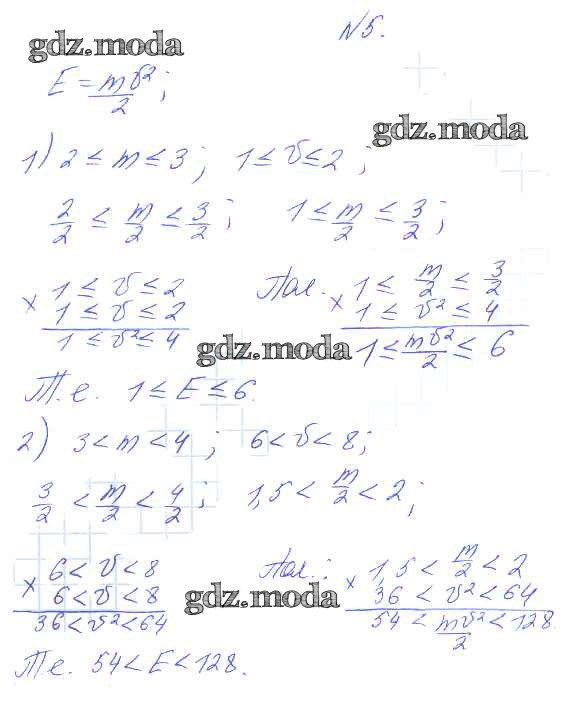 №5.
gdz.moda
E = mv²/2;
gdz.moda
1) 2 ≤ m ≤ 3; 1 ≤ v ≤ 2;
2/2 ≤ m/2 ≤ 3/2; 1 ≤ m/2 ≤ 3/2;
× 1 ≤ v ≤ 2
1 ≤ v ≤ 2
1 ≤ v² ≤ 4
Пол. × 1 ≤ m/2 ≤ 3/2
1 ≤ v² ≤ 4
1 ≤ mv²/2 ≤ 6
gdz.moda
Т.е. 1 ≤ E ≤ 6.
2) 3 < m < 4; 6 < v < 8;
3/2 < m/2 < 4/2; 1,5 < m/2 < 2;
× 6 < v < 8
6 < v < 8
36 < v² < 64
gdz.moda
Пол.: × 1,5 < m/2 < 2
36 < v² < 64
54 < mv²/2 < 128.
Т.е. 54 < E < 128.